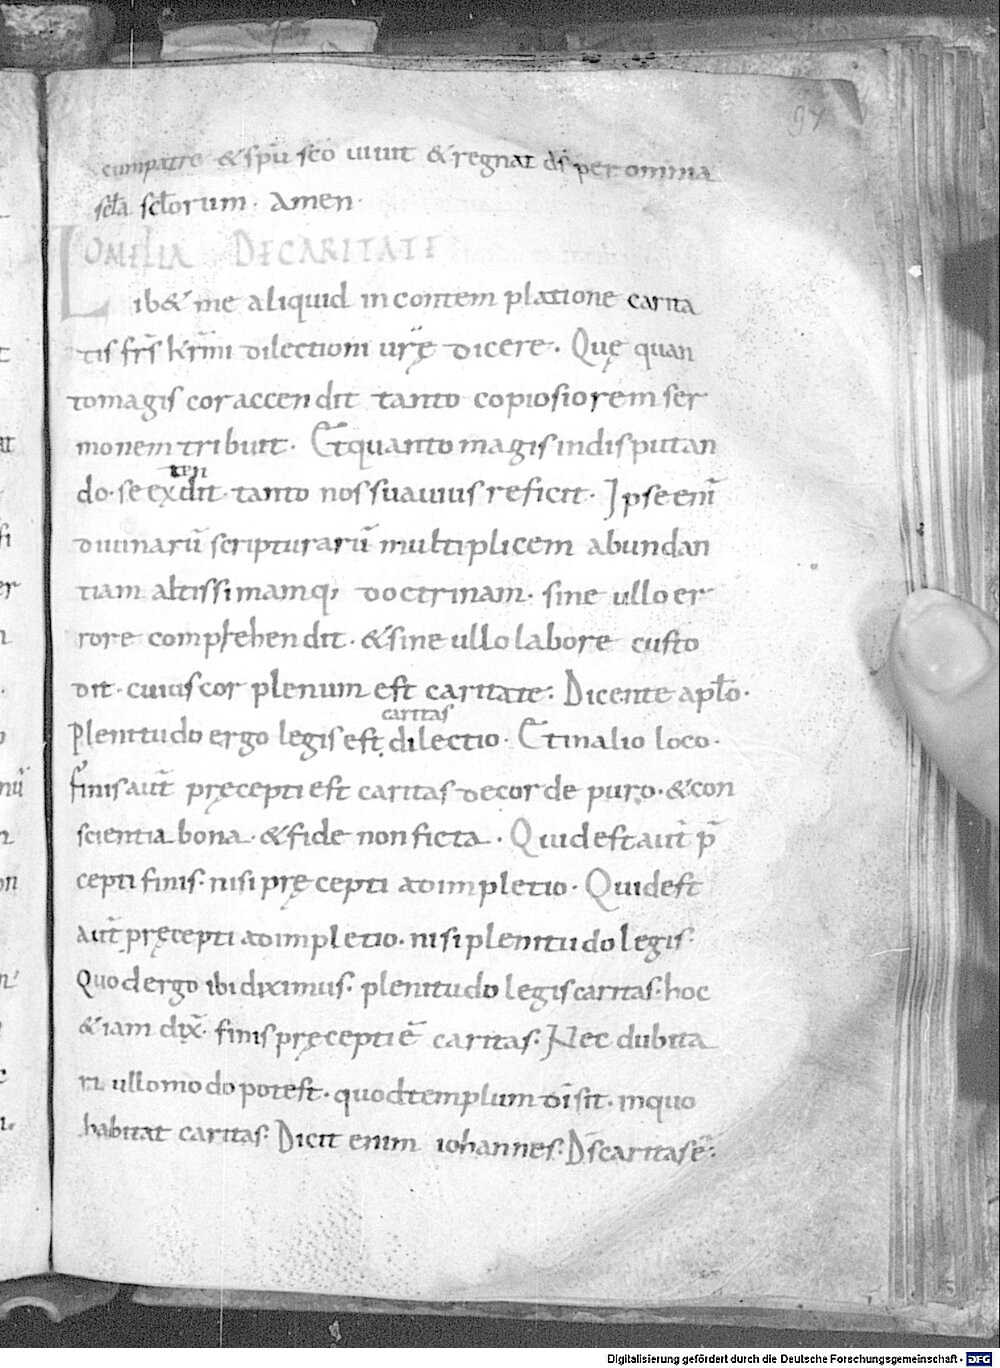 94
cum patre & spū sc̄o uiuit & regnat d̄s per omnia
sc̄la sc̄lorum. Amen.
OMELIA DE CARITATE
Lib& me aliquid in contem platione carita
tis fr̄s kr̄mi dilectioni ur̄ę dicere. Quę quan
to magis cor accendit tanto copiosiorem ser
monem tribuit. Et quanto magis in disputan
do. se exdit. tanto nos suauius reficit. Ipse enī
ten
diuinarū scripturarū multiplicem abundan
tiam altissimamq; doctrinam. sine ullo er
rore comprehendit. & sine ullo labore custo
dit. cuius cor plenum est caritate. Dicente apl̄o.
caritas
Plenitudo ergo legis est dilectio. Et in alio loco.
finis aut̄ pręcepti est caritas de corde puro. & con
scientia bona. & fide non ficta. Quid est aut̄ p̄
cepti finis. nisi pręcepti adimpletio. Quid est
aut̄ pręcepti adimpletio. nisi plenitudo legis.
Quod ergo ibi diximus. plenitudo legis caritas. hoc
& iam dix̄. finis pręcepti ē caritas. Nec dubita
ri ullo modo potest. quod templum dī sit. in quo
habitat caritas. Dicit enim iohannes. D̄s caritas ē.
Digitalisierung gefördert durch die Deutsche Forschungsgemeinschaft - DFG